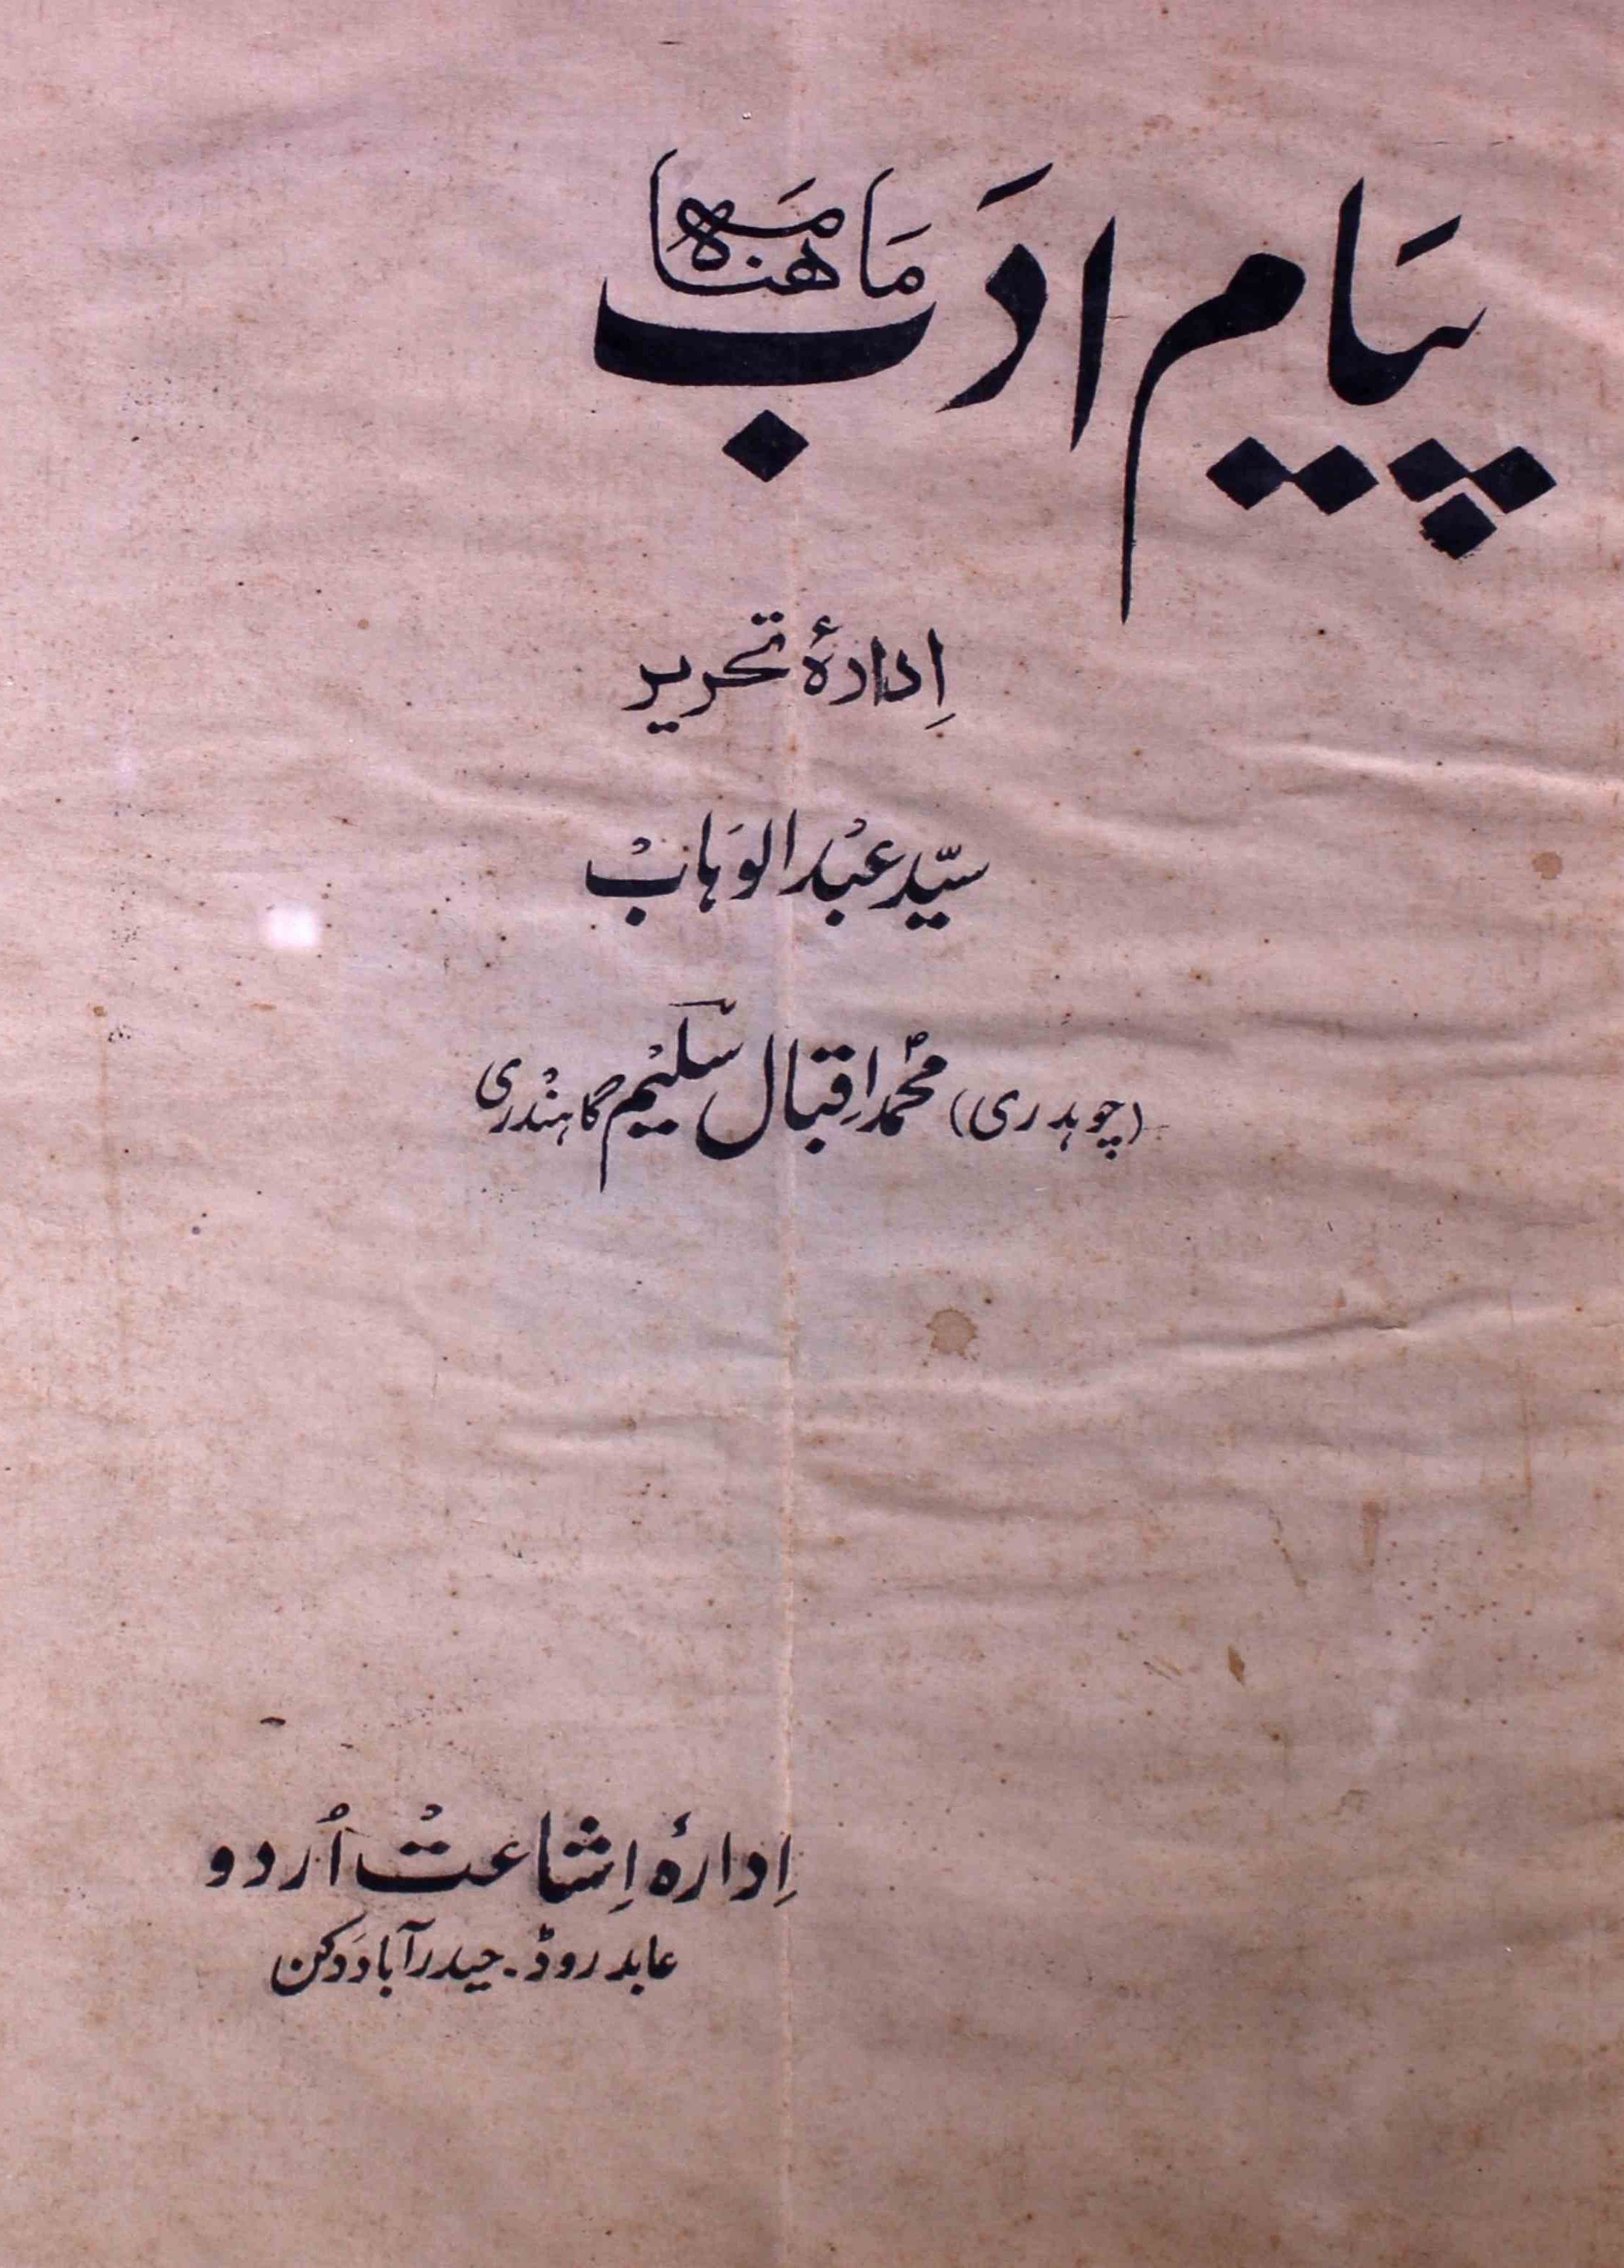 ماهنامه
پیام ادَب
اِدارۂ تحریر
سیّد عبْد الوَہابْ
(چوہدری) محمّد اِقبال سَلیْم گاہنْدری
اِدارۂ اِشاعتْ اُردو
عابد روڈ۔ حیدرآباد دَکن